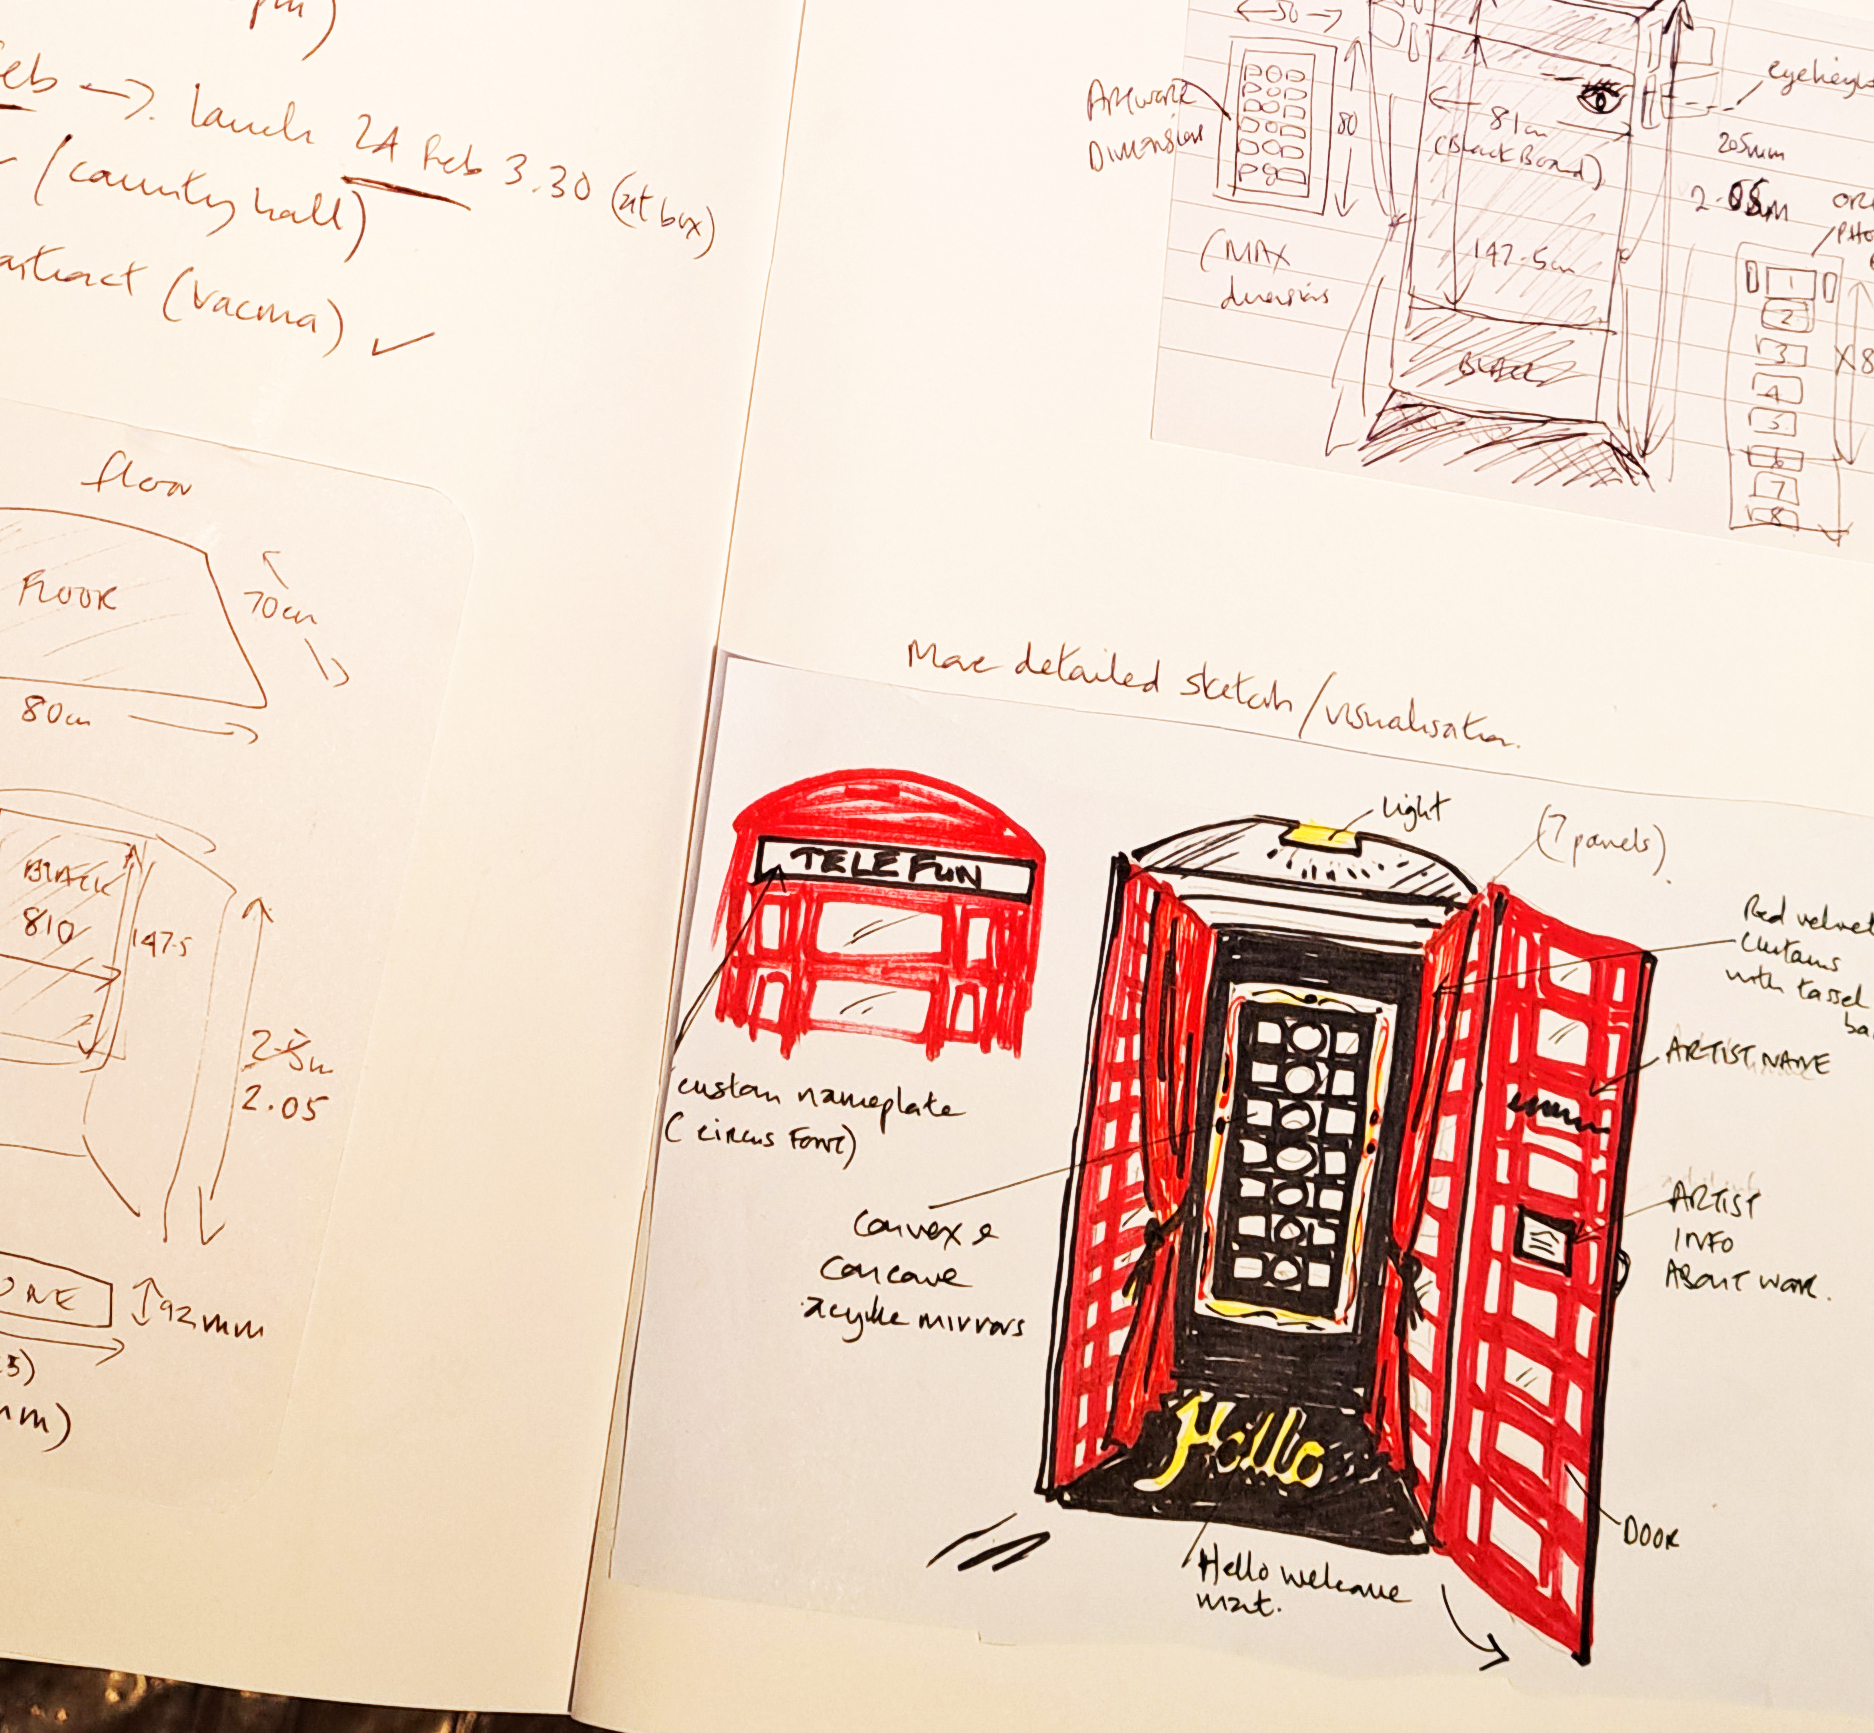 pm)
Feb → launch 24 Feb 3.30 (at box)
(county hall)
(vacma) ✓
floor
FLOOR
70cm
80cm
BLACK
810
147.5
2.05
ONE
92mm
mm)
50
Artwork
Dimensions
80
(MAX
dimensions
81cm
(Black Board)
147.5cm
BLACK
eyeheight
205mm
2.05m
1
2
3
4
5
6
7
8
X8
More detailed sketch/visualisation.
TELEFUN
custom nameplate
(circus font)
light
(7 panels).
Red velvet
curtains
with tassel
ARTIST NAME
convex &
concave
acrylic mirrors
ARTIST
INFO
ABOUT WORK.
Hello
DOOR
Hello welcome
mat.